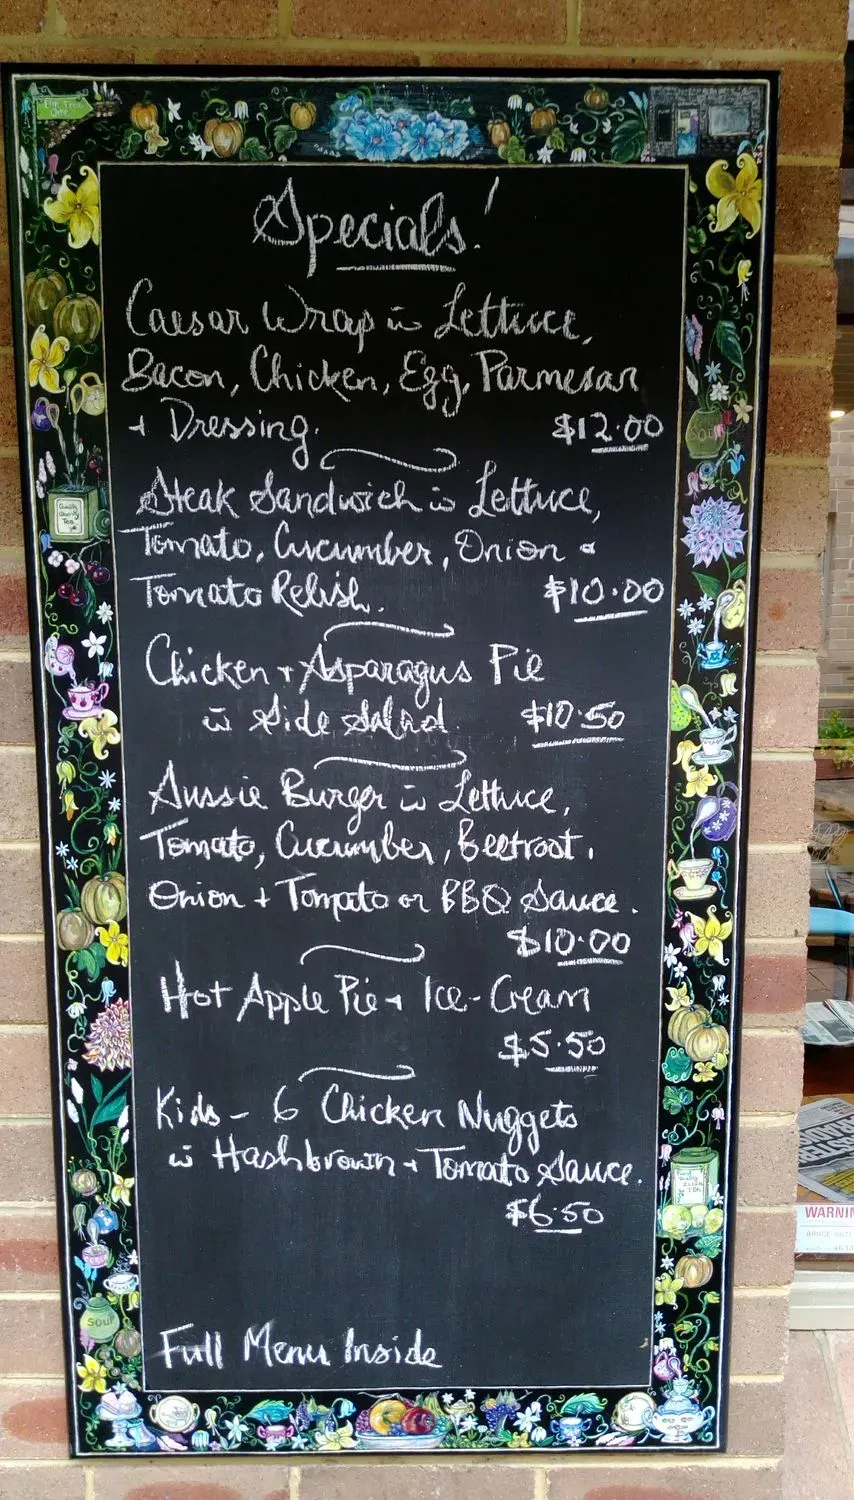 Elm Tree Cafe
Specials!
Caesar Wrap w Lettuce,
Bacon, Chicken, Egg, Parmesan
+ Dressing. $12.00
Steak Sandwich w Lettuce,
Tomato, Cucumber, Onion &
Tomato Relish. $10.00
Chicken + Asparagus Pie
w Side Salad. $10.50
Aussie Burger w Lettuce,
Tomato, Cucumber, Beetroot,
Onion + Tomato or BBQ Sauce.
$10.00
Hot Apple Pie + Ice-Cream
$5.50
Kids - 6 Chicken Nuggets
w Hashbrown + Tomato Sauce.
$6.50
Full Menu Inside
Soup
Tea
SOUP
WARNIN